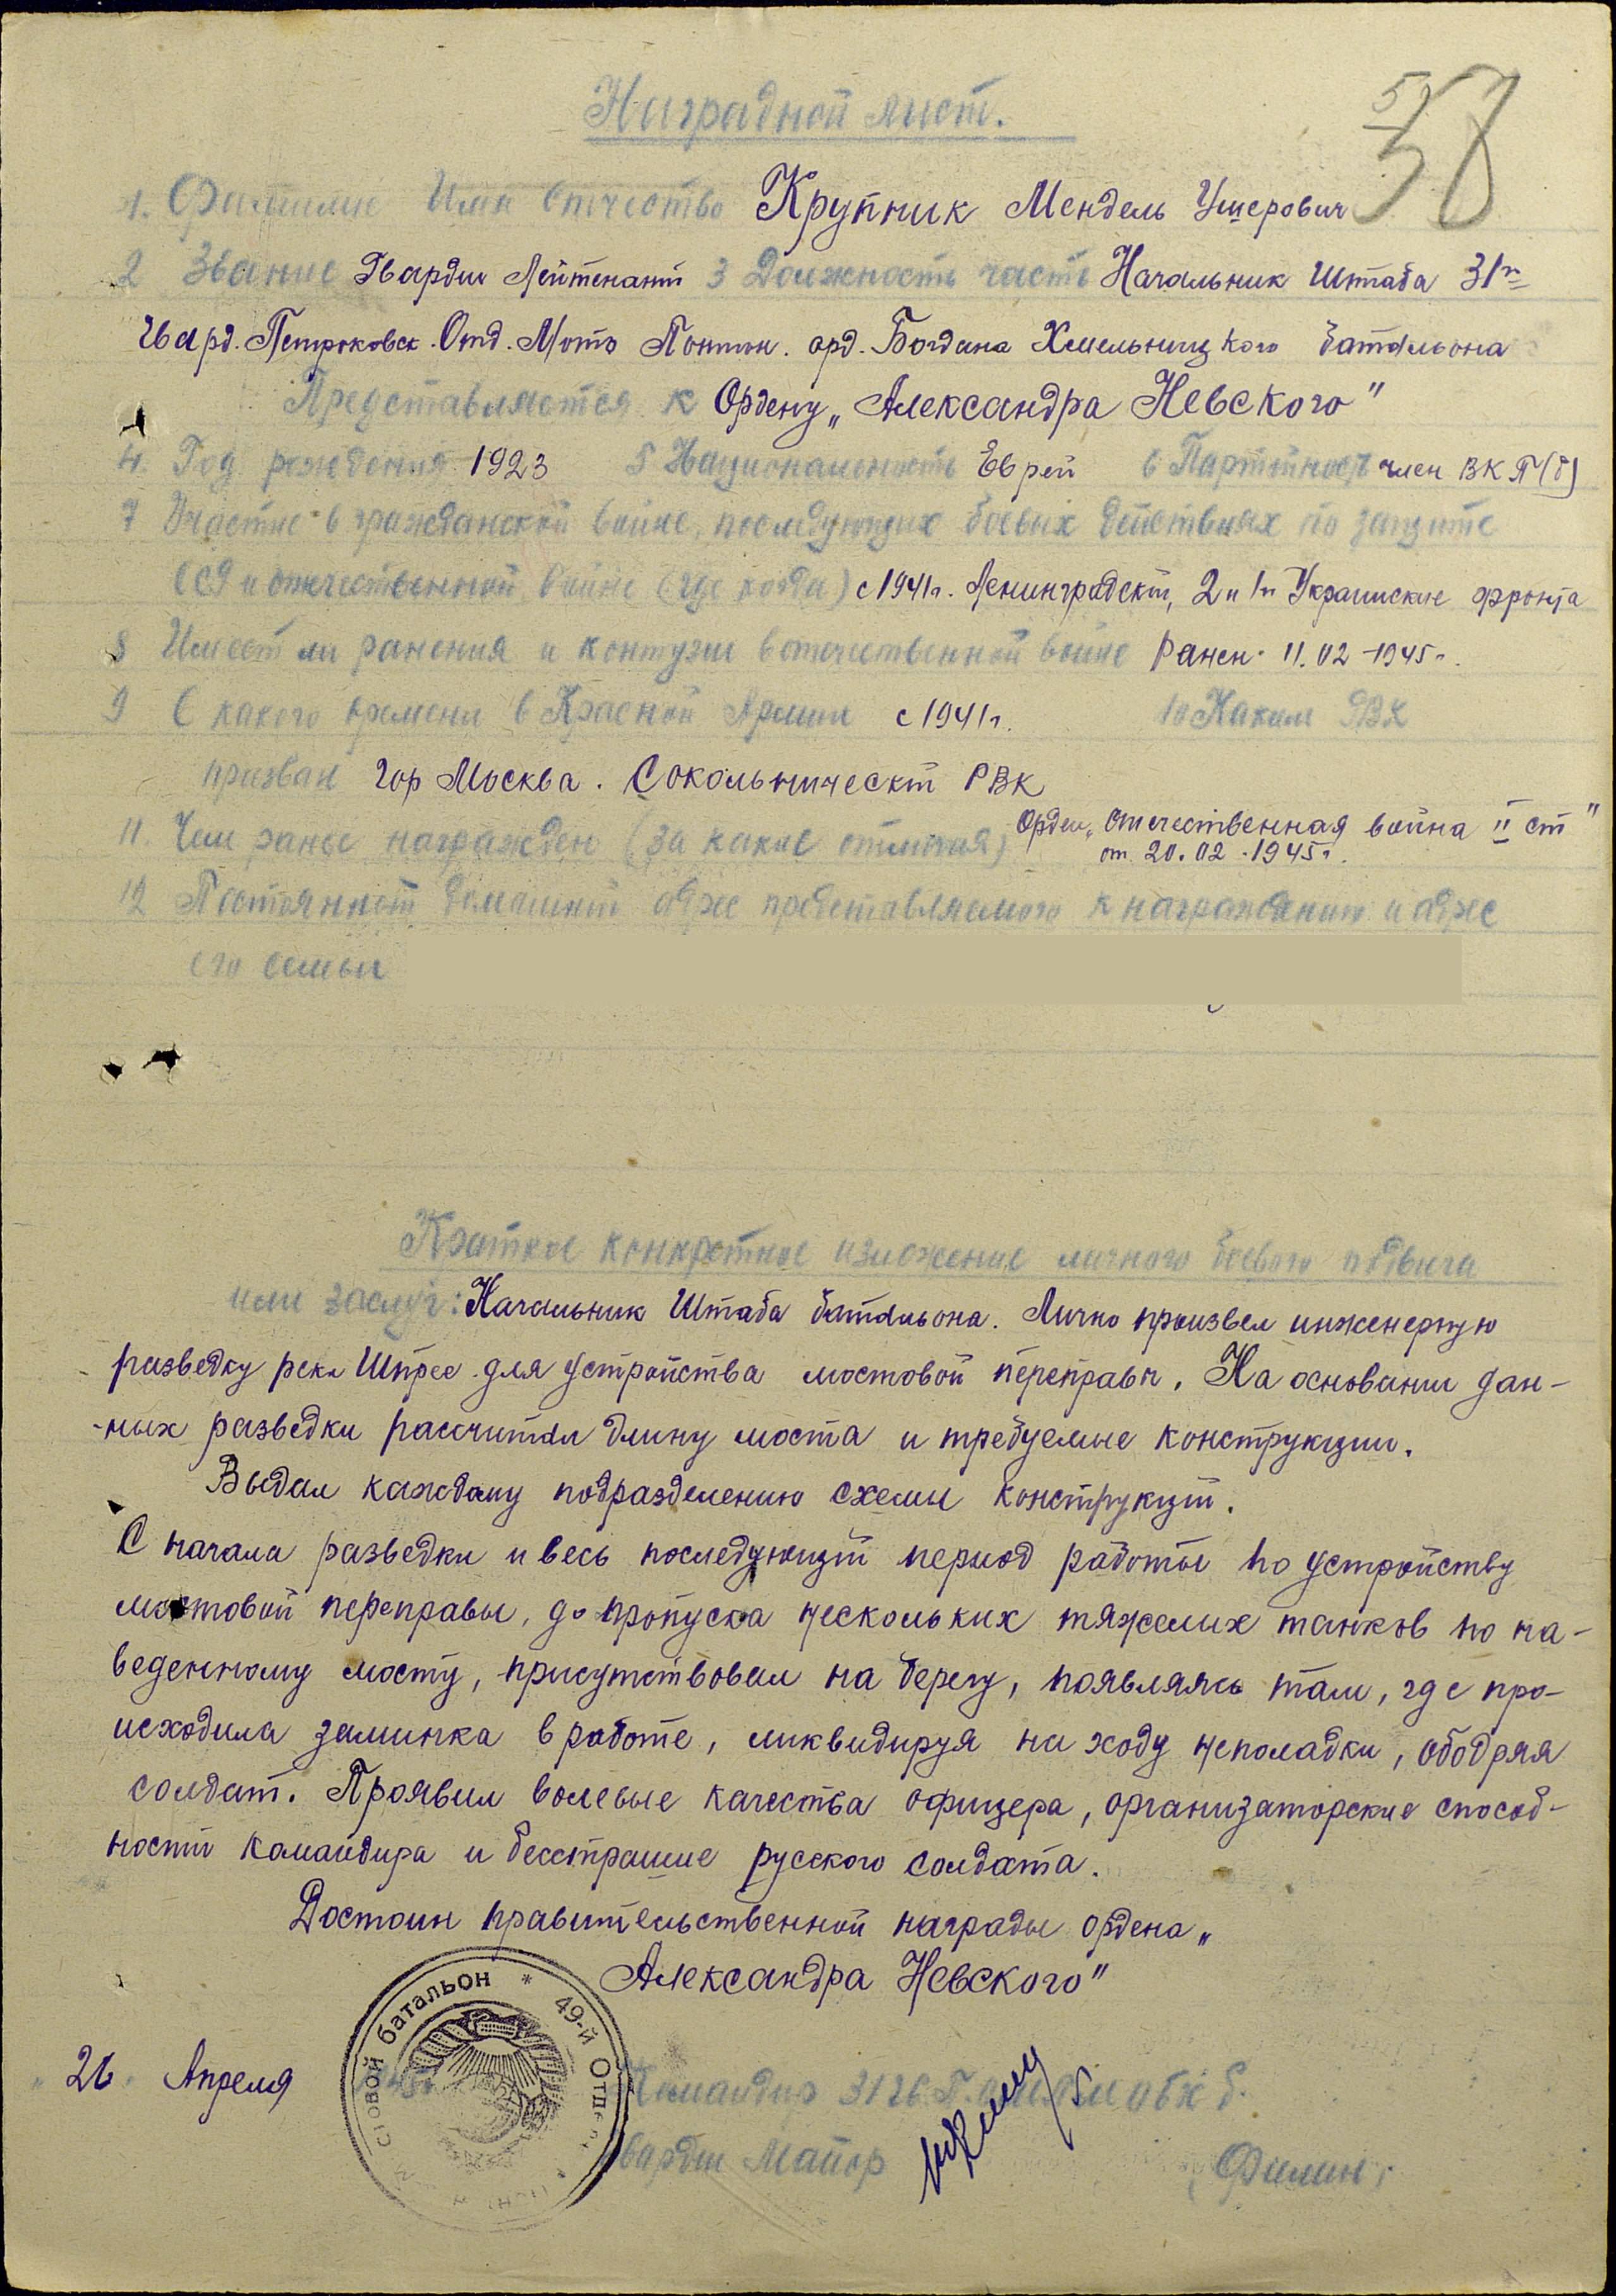 58
Наградной лист.
1. Фамилие Имя Отчество Крупник Мендель Ушерович
2 Звание Гвардии Лейтенант 3 Должность часть Начальник Штаба 31й
Гвард. Петроковск. Отд. Мото Понтон. орд. Богдана Хмельницкого батальона
Представляется к Ордену „Александра Невского"
4. Год рождения 1923 5 Национальность Еврей 6 Партийность член ВКП(б)
7 Участие в гражданской войне, последующих боевых действиях по защите
СССР и отечественной войне (где когда) с 1941г. Ленинградский, 2й 1й Украинские фронта
8 Имеет ли ранения и контузии в отечественной войне Ранен 11.02-1945г.
9 С какого времени в Красной Армии с 1941г. 10 Каким РВК
призван гор Москва. Сокольнический РВК
11. Чем ранее награжден (за какие отличия) Орден „Отечественная война II ст"
от 20.02.1945г.
12 Постоянный домашний адрес представляемого к награждению и адрес
его семьи
Краткое конкретное изложение личного боевого подвига
или заслуг: Начальник Штаба батальона. Лично произвел инженерную
разведку реки Шпрее для устройства мостовой переправы. На основании дан-
-ных разведки рассчитал длину моста и требуемые конструкции.
Выдал каждому подразделению схемы конструкций.
С начала разведки и весь последующий период работы по устройству
мостовой переправы, до пропуска нескольких тяжелых танков по на-
веденному мосту, присутствовал на берегу, появляясь там, где про-
исходила заминка в работе, ликвидируя на ходу неполадки, ободряя
солдат. Проявил волевые качества офицера, организаторские способ-
ности командира и бесстрашие русского солдата.
Достоин правительственной награды ордена „
Александра Невского"
49-й Отд. мостовой батальон *
„26" Апреля 1945г. Командир 31 гв.
Гвардии Майор (Филин)